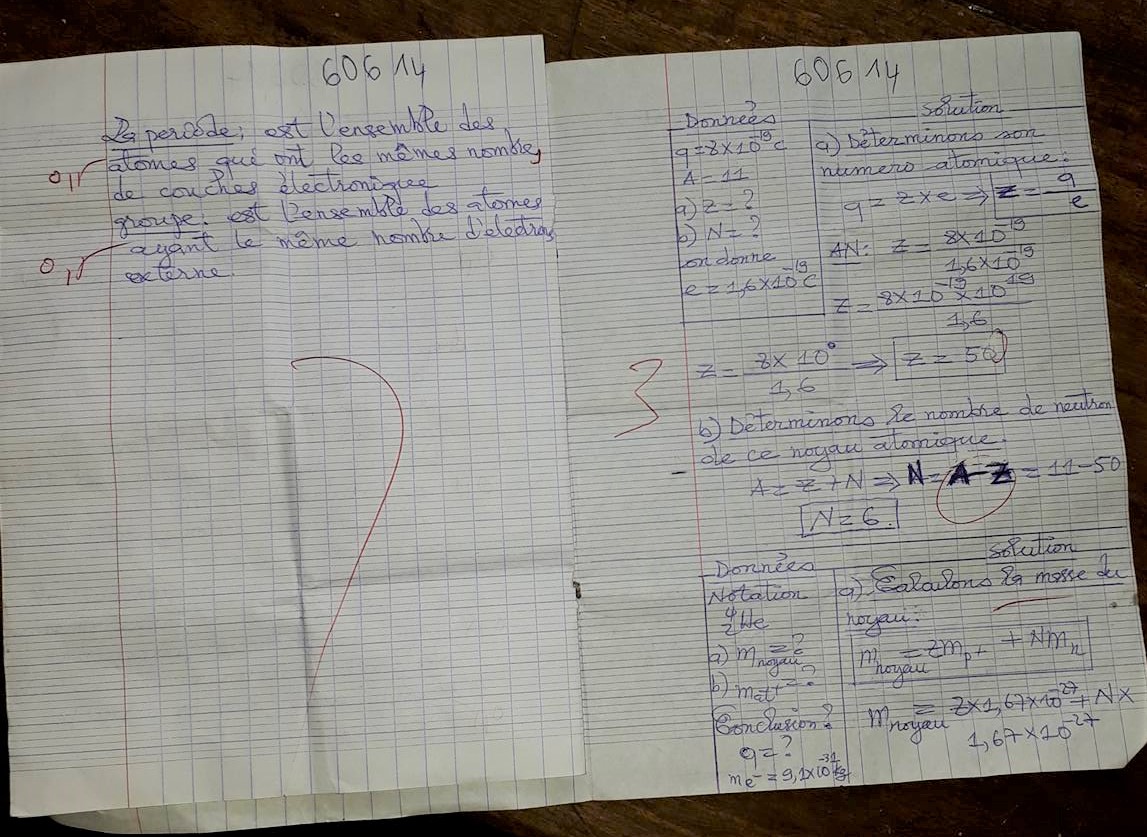 60614
La periode; est l'ensemble des
atomes qui ont les mêmes nombre,
de couches électronique
groupe: est l'ensemble des atomes
ayant le même nombre d'electrons
externe.
0,5
0,5
60614
Données
q=8×10⁻¹⁹C
A=11
a) Z=?
b) N=?
on donne
e=1,6×10⁻¹⁹C
Solution
a) Déterminons son
numero atomique:
q = Z×e ⟹ Z = q/e
AN: Z = 8×10⁻¹⁹/1,6×10⁻¹⁹
Z = 8×10⁻¹⁹×10¹⁹/1,6
Z = 8×10⁰/1,6 ⟹ Z = 50
3
b) Déterminons le nombre de neutron
de ce noyau atomique.
A = Z+N ⟹ N=A-Z = 11-50
N=6.
Données
Notation
⁴₂He
a) m noyau =?
b) m at =?
Conclusion?
q=?
me⁻=9,1×10⁻³¹kg
Solution
a) Calculons la masse du
noyau:
m noyau = Zmp+ + Nmn
m noyau = Z×1,67×10⁻²⁷+N×
1,67×10⁻²⁷